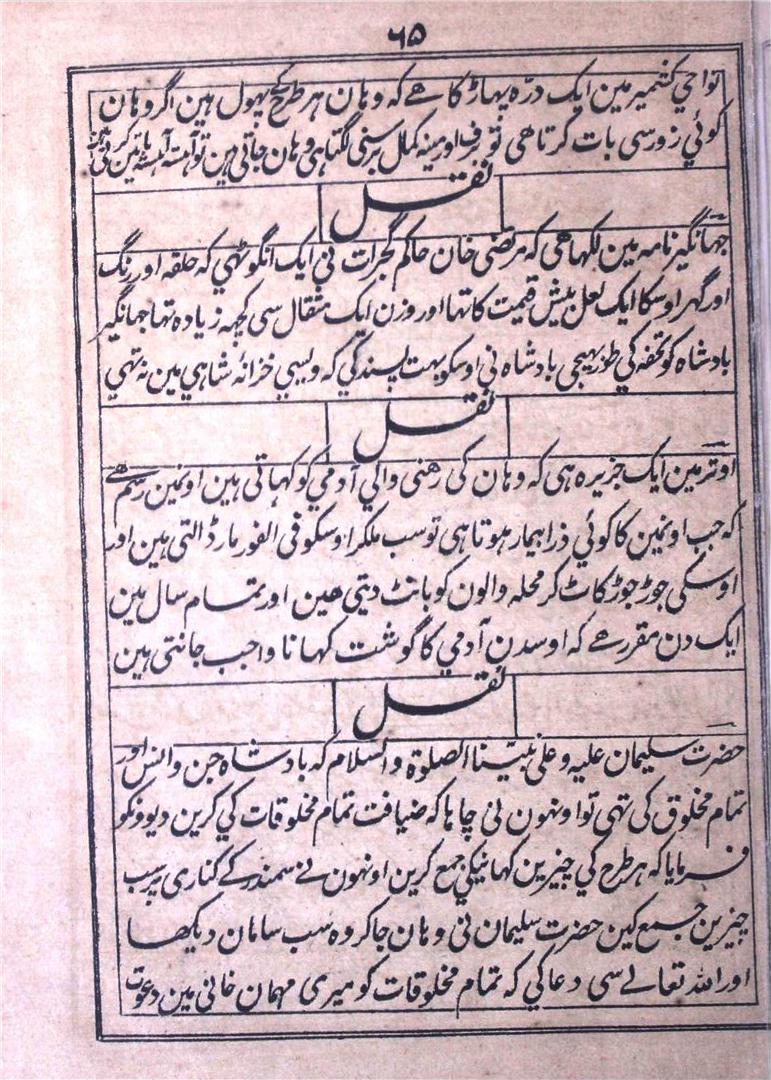 ۶۵
نواحي کشمیر مین ایک درّہ پہاڑ کا ھے کہ وہان ہر طرح کے پھول ہین اگر وہان
کوئي زور سی بات کرتا ھی تو برف اور مینہ کمال برسنی لگتا ہی وہان جاتی ہین تو آہستہ آہستہ باتین کرتی ہین
نقــل
جہانگیر نامہ مین لکھا ھی کہ مرتضی خان حاکم گجرات نی ایک انگوٹھي کہ حلقہ اور رنگ
اور گھر اوسکا ایک لعل بیش قیمت کا تھا اور وزن ایک مثقال سی کچھ زیادہ تھا جہانگیر
بادشاہ کو تحفہ کي طور بھیجی بادشاہ نی اوسکو بہت پسند کي کہ ویسی خزانہٴ شاہي مین نہ تھي
نقــل
اوتر مین ایک جزیرہ ہی کہ وہان کی رھنی والي آدمي کو کھاتی ہین اونمین رسم ھے
کہ جب اونمین کا کوئي ذرا بیمار ہوتا ہی تو سب ملکر اوسکو فی الفور مار ڈالتی ہین اور
اوسکی جوڑ جوڑ کاٹ کر محلہ والون کو بانٹ دیتی ھین اور تمــام سال مین
ایک دن مقرر ھے کہ اوسدن آدمي کا گوشت کھانا واجب جانتی ہین
نقــل
حضرت سلیمان علیہ و علیٰ نبیّنا الصلوٰة والسلام کہ بادشاہ جن و انس اور
تمام مخلوق کی تھی تو اونھون نی چاہا کہ ضیافت تمام مخلوقات کي کرین دیوونکو
فــرمایا کہ ہر طرح کي چیزین کھانیکي جمع کرین اونھون نے سمندر کے کناری پر سب
چیزین جــمع کین حضرت سلیمان نی وہان جا کر وہ سب سامان دیکھا
اور اللہ تعالے سی دعا کي کہ تمام مخلوقات کو میری مہمان خانی مین دعوت